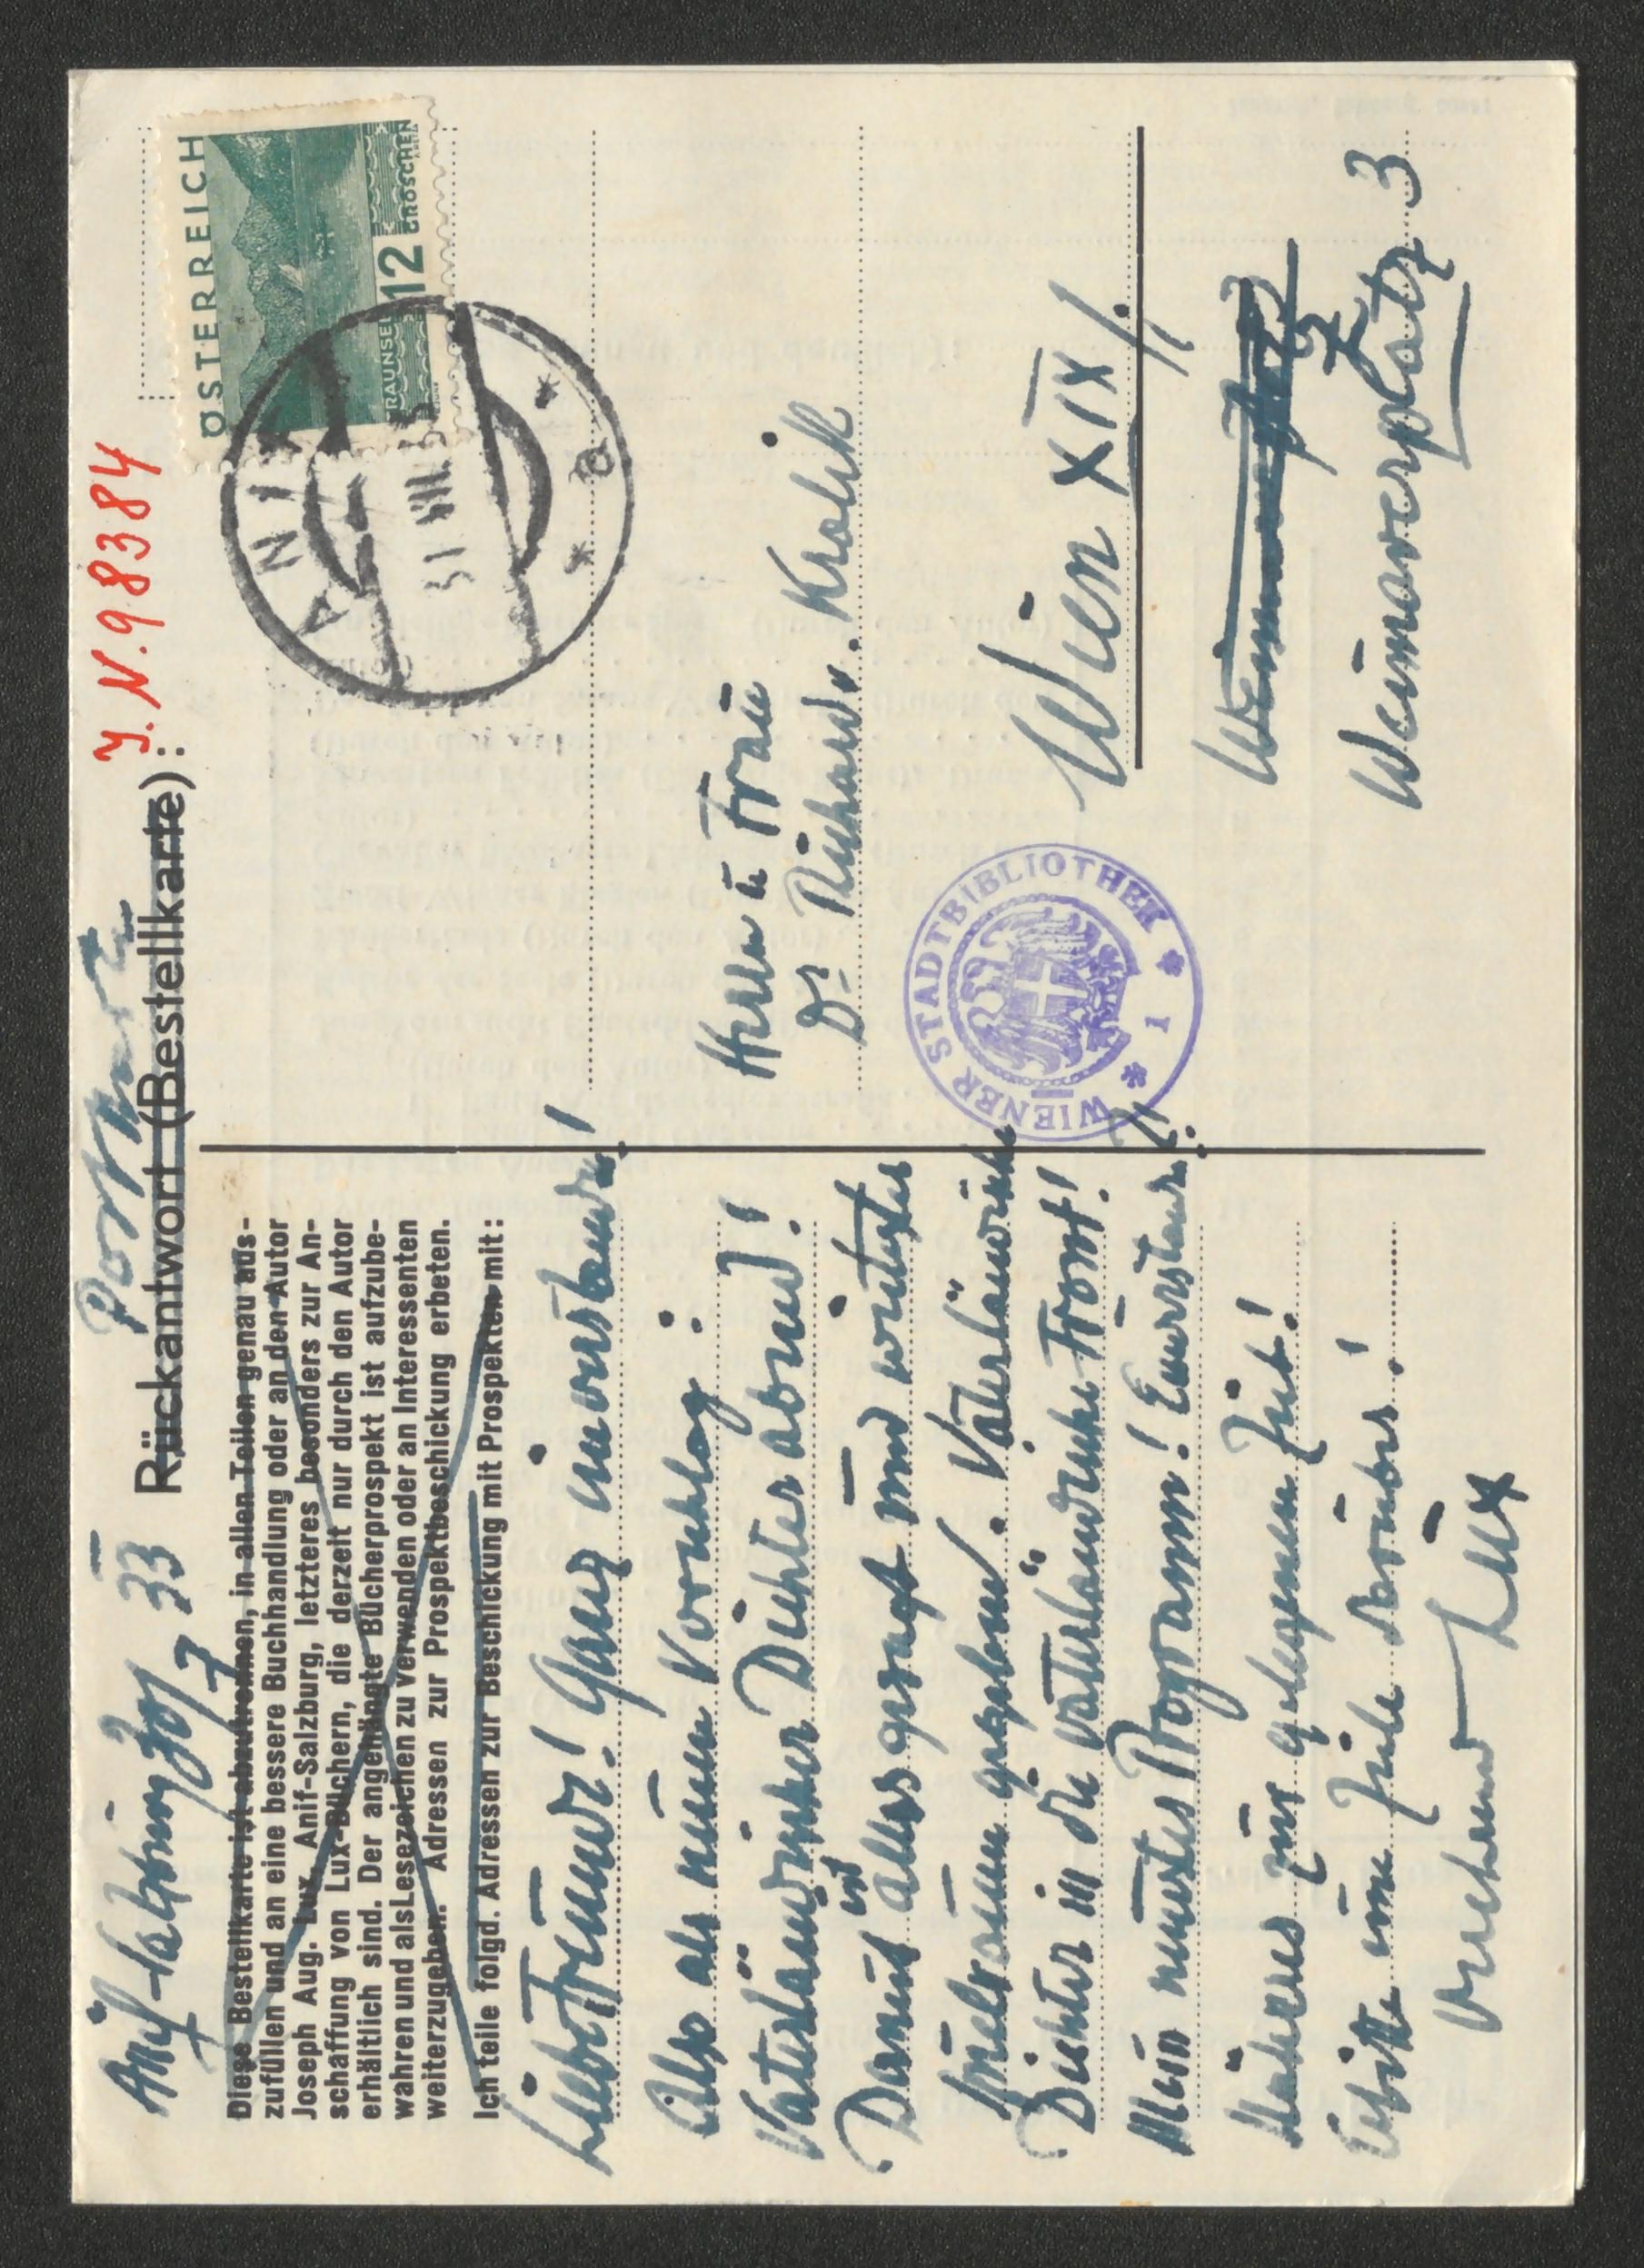 Anif-Salzburg 30/7 33
Postkarte
J.N. 98384
Rückantwort (Bestellkarte):
Diese Bestellkarte ist abzutrennen, in allen Teilen genau aus-
zufüllen und an eine bessere Buchhandlung oder an den Autor
Joseph Aug. Lux, Anif-Salzburg, letzteres besonders zur An-
schaffung von Lux-Büchern, die derzeit nur durch den Autor
erhältlich sind. Der angehängte Bücherprospekt ist aufzube-
wahren und als Lesezeichen zu verwenden oder an Interessenten
weiterzugeben. Adressen zur Prospektbeschickung erbeten.
Ich teile folgd. Adressen zur Beschickung mit Prospekten mit:
Liebe Freunde! Ganz einverstanden!
Also als neuen Vorschlag:
Vaterländischer Dichterabend!
Damit ist alles gesagt und weitester
Spielraum gegeben. Vaterländische
Dichter in die vaterländische Front!
Mein neuestes Programm! Einverstanden?!
Näheres zur gelegenen Zeit!
Erbitte eine Zeile darüber!
Lux
ÖSTERREICH
TRAUNSEE
12 GROSCHEN
ANIF
31.VII.33
* a *
Herrn u Frau
Dr Richard v. Kralik
Wien XIX/1.
Weimarerplatz 3
WIENER STADTBIBLIOTHEK
* 1 *